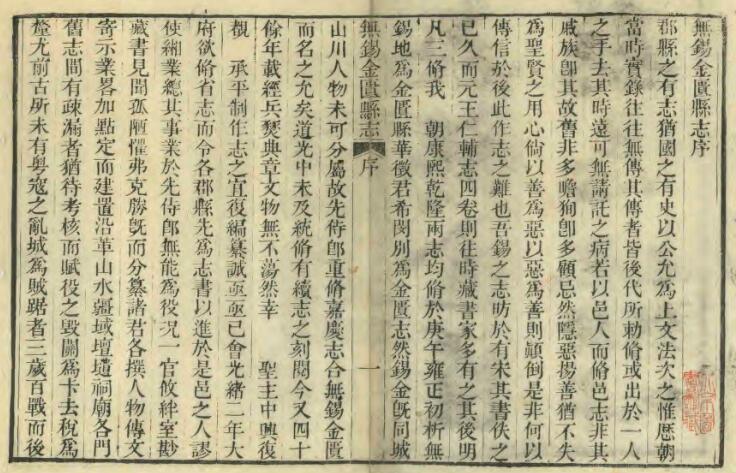 無錫金匱縣志序
郡縣之有志猶國之有史以公允爲上文法次之惟歷朝
當時實錄往往無傳其傳者皆後代所勅脩或出於一人
之手去其時遠可無請託之病若以邑人而脩邑志非其
戚族卽其故舊非多瞻狥卽多顧忌然隱惡揚善猶不失
爲聖賢之用心倘以善爲惡以惡爲善則顚倒是非何以
傳信於後此作志之難也吾錫之志昉於有宋其書佚之
已久而元王仁輔志四卷則往時藏書家多有之其後明
凡三脩我 朝康熙乾隆兩志均脩於庚午雍正初析無
錫地爲金匱縣華徵君希閔別爲金匱志然錫金旣同城
無錫金匱縣志 序 一
山川人物未可分屬故先侍郎重脩嘉慶志合無錫金匱
而名之允矣道光中未及統脩有續志之刻閱今又四十
餘年載經兵燹典章文物無不蕩然幸 聖主中興復
覩 承平制作志之宜復編纂誠亟亟已會光緒二年大
府欲脩省志而令各郡縣先爲志書以進於是邑之人謬
使緗業總其事業於先侍郎無能爲役況一官攸絆室尠
藏書見聞孤陋懼弗克勝旣而分纂諸君各撰人物傳文
寄示業畧加點定而建置沿革山水疆域壇壝祠廟各門
舊志間有疎漏者猶待考核而賦役之毀闗爲卡去稅爲
釐尤前古所未有粤寇之亂城爲賊踞者三歲百戰而後